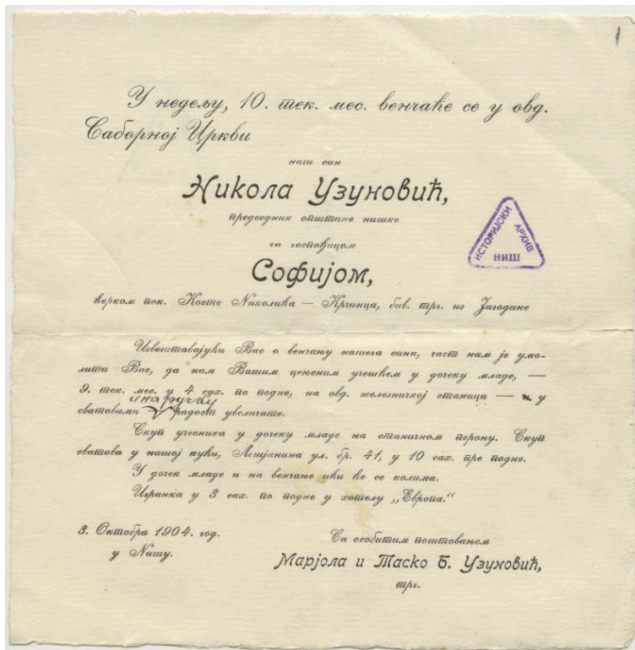 1
У недељу, 10. тек. мес. венчаће се у овд.
Саборној Цркви
наш син
Никола Узуновић,
председник општине нишке
са госпођицом
Софијом,
ћерком пок. Косте Николића — Крчинца, бив. трг. из Јагодине
ИСТОРИЈСКИ АРХИВ НИШ
Извештавајући Вас о венчању нашега сина, част нам је умо-
лити Вас, да нам Вашим цењеним учешћем у дочеку младе, —
9. тек. мес. у 4 сах. по подне, на овд. железничкој станици — у
и на ручку
сватовима радост увеличате.
Скуп учесника у дочеку младе на станичном перону. Скуп
сватова у нашој кући, Лешјанина ул. бр. 41, у 10 сах. пре подне.
У дочек младе и на венчање ићи ће се колима.
Игранка у 3 сах. по подне у хотелу „Европа.“
3. Октобра 1904. год.
у Нишу.
Са особитим поштовањем
Марјола и Таско Б. Узуновић,
трг.